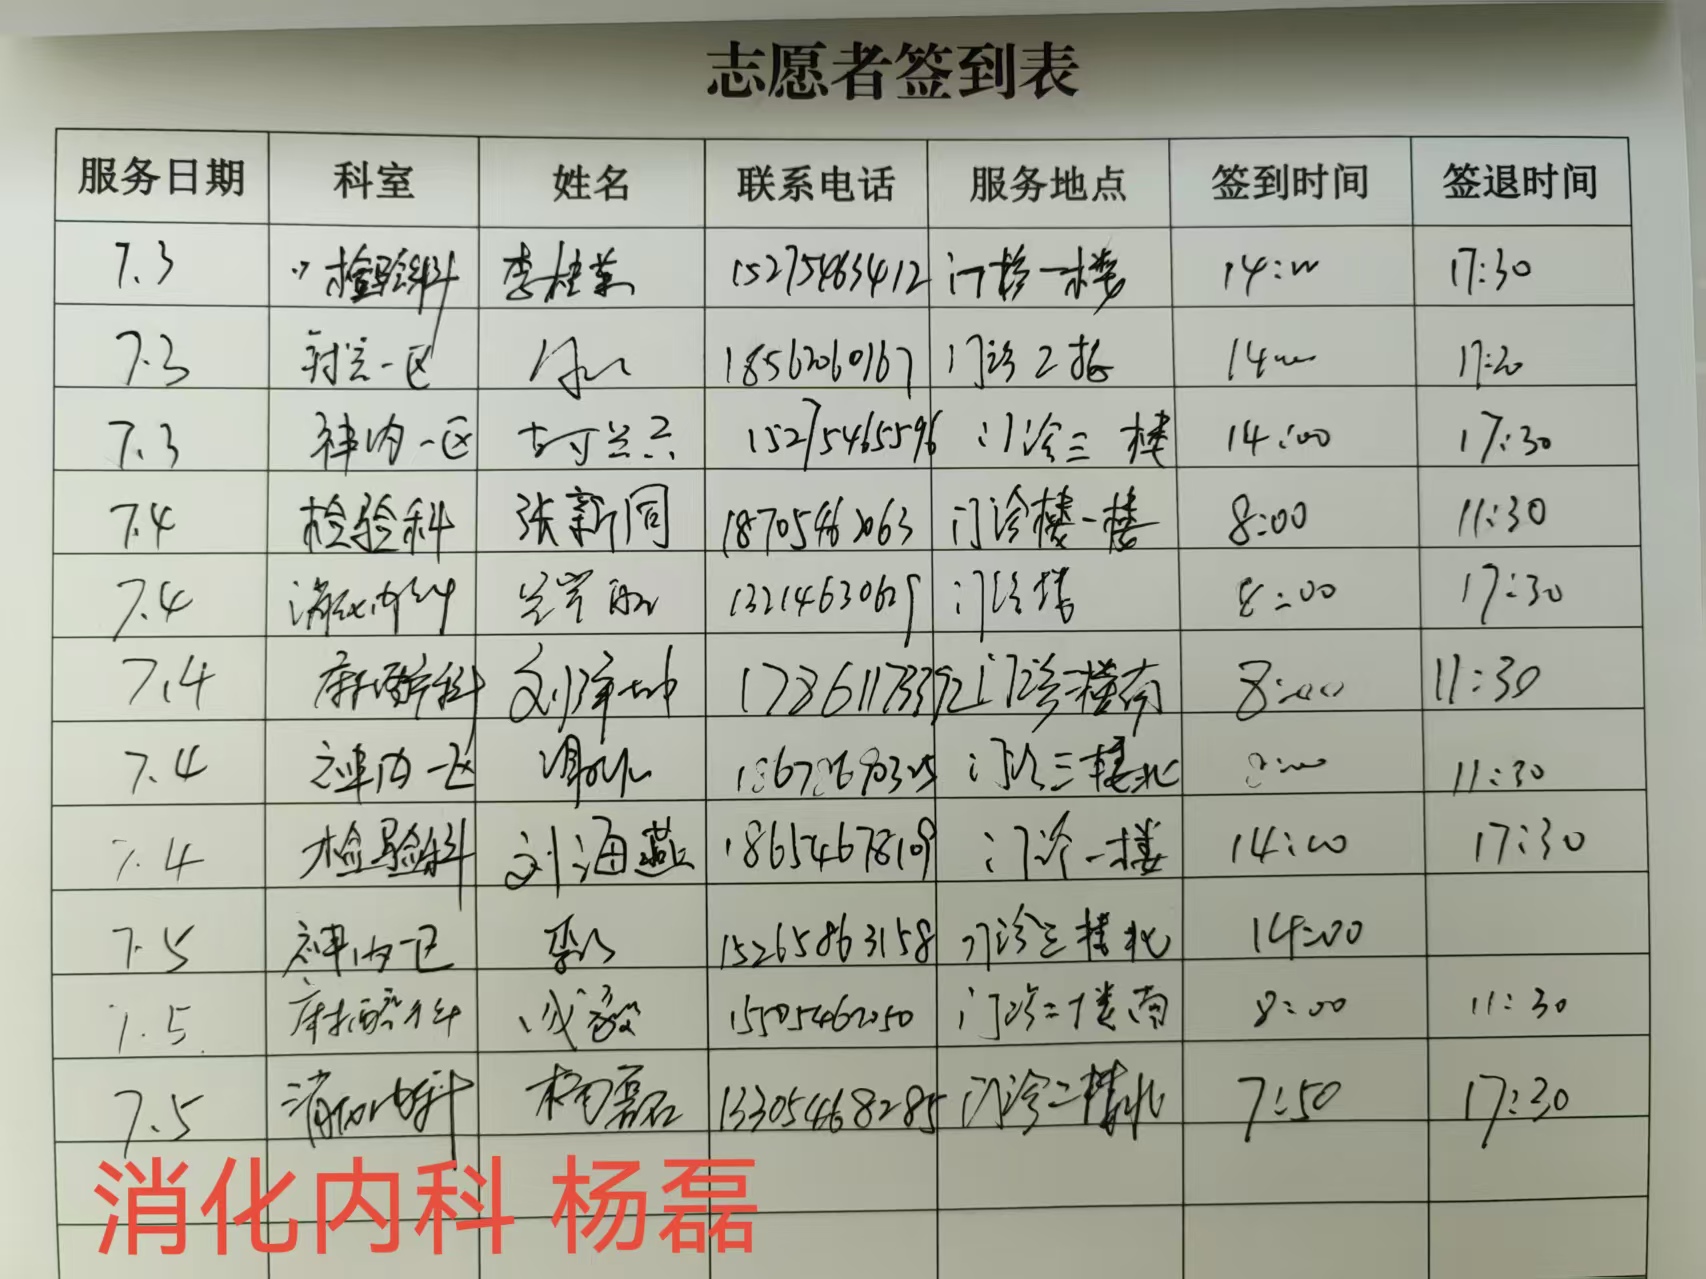 志愿者签到表
服务日期 科室 姓名 联系电话 服务地点 签到时间 签退时间
7.3 检验科 李桂英 15275463412 门诊一楼 14:00 17:30
7.3 一区 18562060167 门诊2楼 14:00 17:30
7.3 神内一区 15275465596 门诊三楼 14:00 17:30
7.4 检验科 张新同 18705462063 门诊楼一楼 8:00 11:30
7.4 消化内科 13214630629 门诊楼 8:00 17:30
7.4 麻醉科 刘泽坤 17861173392 门诊二楼南 8:00 11:30
7.4 神内一区 18678690325 门诊三楼北 8:00 11:30
7.4 检验科 刘海燕 18654678109 门诊一楼 14:00 17:30
7.5 神内一区 15265863158 门诊三楼北 14:00
7.5 麻醉科 15505462050 门诊二楼南 8:00 11:30
7.5 消化内科 杨磊 13305468285 门诊二楼北 7:50 17:30
消化内科 杨磊